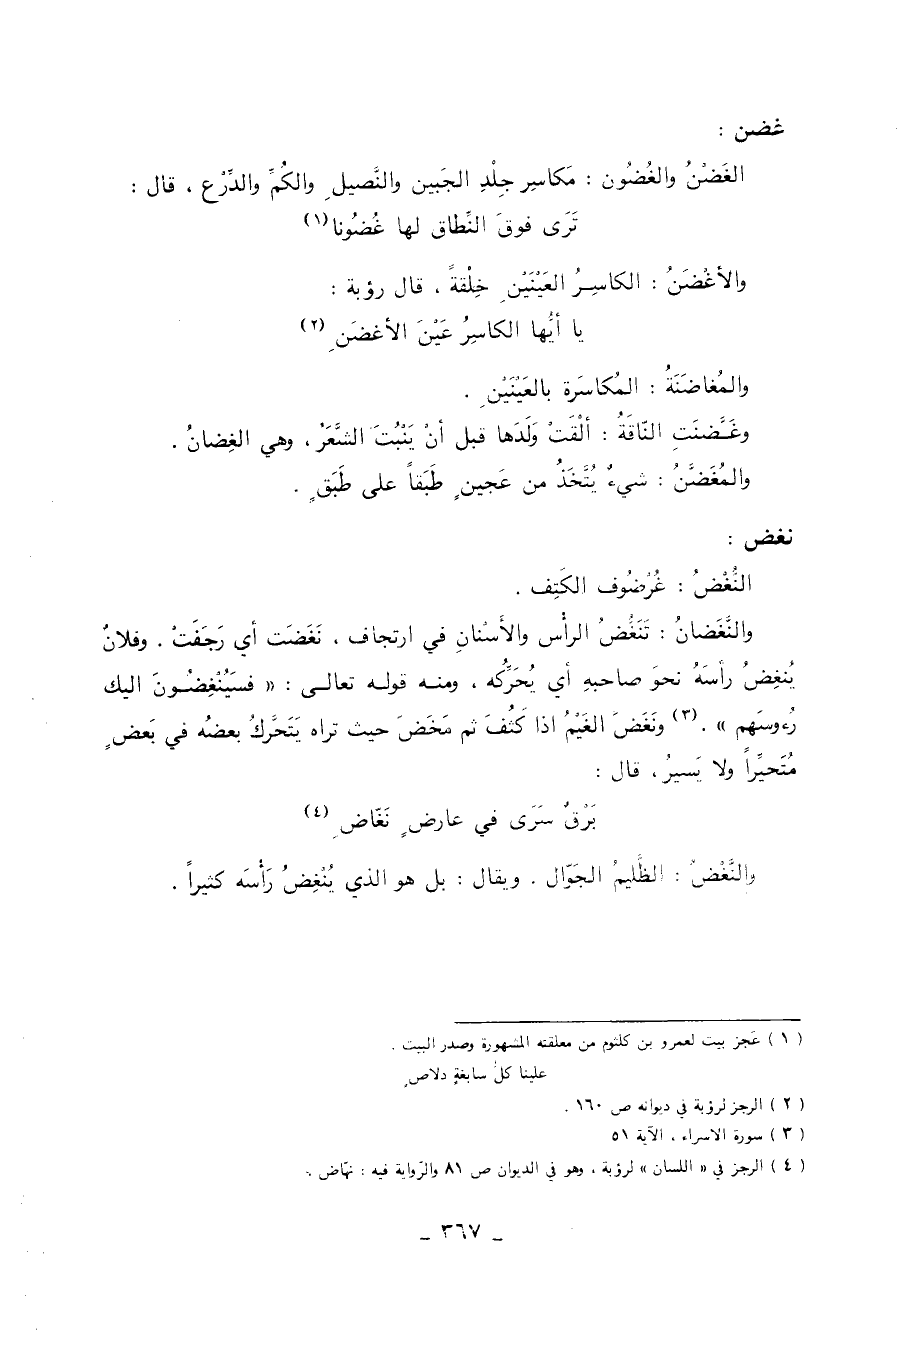 غضن :
الغَضْنُ والغُضُون : مَكاسِر جِلْدِ الجَبين والنَّصيلِ والكُمِّ والدِّرْع ، قال :
تَرَى فوقَ النِّطاق لها غُضُونا(١)
والأغْضَنُ : الكاسِـرُ العَيْنَيْنِ خِلْقةً ، قال رؤبة :
يا أيُّها الكاسِرُ عَيْنَ الأغضَنِ (٢)
والمُغاضَنَةُ : المُكاسَرة بالعَيْنَيْنِ .
وغَـضَّنَتِ النّاقَةُ : ألْقَتْ وَلَدَها قبل أنْ يَنْبُتَ الشَّعَرُ ، وهي الغِضانُ .
والمُغَضَّنُ : شيءٌ يُتَّخَذُ من عَجينٍ طَبَقاً على طَبَقٍ .
نغض :
النُّغْضُ : غُرْضُوف الكَتِف .
والنَّغَضانُ : تَنَغُّضُ الرأْس والأَسْنانِ في ارتجاف ، نَغَضَت أي رَجَفَتْ . وفلانٌ
يُنغِضُ رأسَهُ نحوَ صاحبهِ أي يُحَرِّكُه ، ومنـه قولـه تعالـى : « فسَيُنْغِضُـونَ اليك
رُءوسَهم » .(٣) ونَغَضَ الغَيْمُ اذا كَثُفَ ثم مَخَضَ حيث تراه يَتَحَّركُ بعضهُ في بَعضٍ
مُتَحيِّراً ولا يَسيرُ ، قال :
بَرْقٌ سَرَى في عارضٍ نَغّاضِ (٤)
والنَّغْضُ : الظَّليمُ الجَوّال . ويقال : بل هو الذي يُنْغِضُ رَأْسَه كثيراً .
( ١ ) عَجز بيت لعمرو بن كلثوم من معلقته المشهورة وصدر البيت .
علينا كلُ سابغةٍ دلاصٍ
( ٢ ) الرجز لرؤبة في ديوانه ص ١٦٠ .
( ٣ ) سورة الاسراء ، الآية ٥١
( ٤ ) الرجز في « اللسان » لرؤبة ، وهو في الديوان ص ٨١ والرّواية فيه : نهّاض .
_ ٣٦٧ _